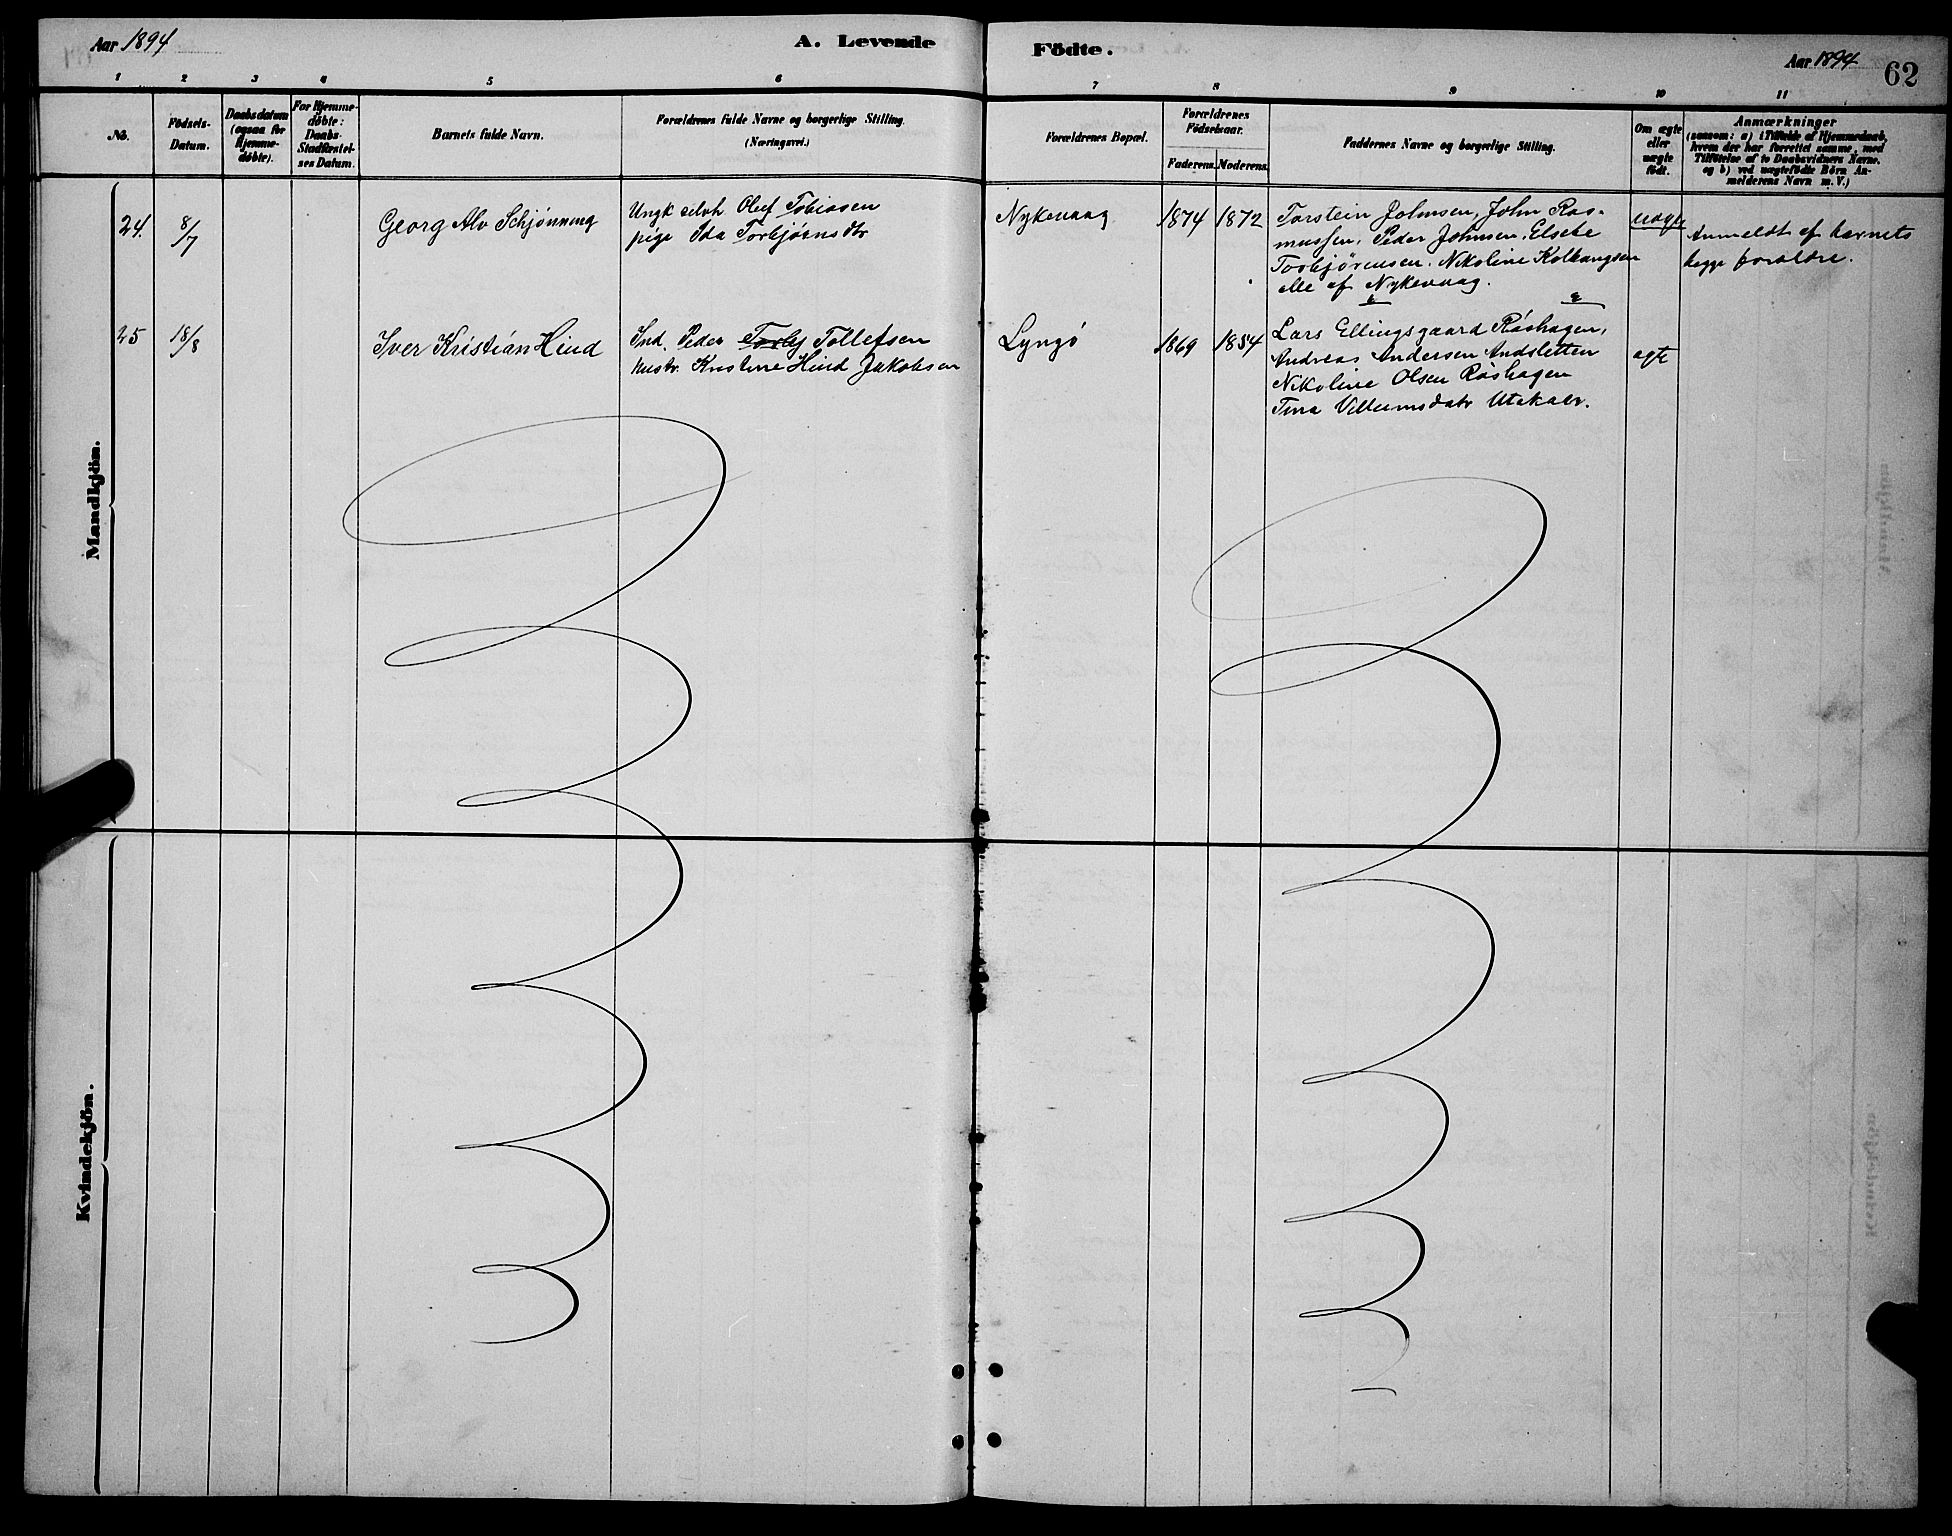 Aar 1894
A. Levende
Födte.
Aar 1894
62
1 2 3 4 5 6 7 8 9 10 11
No.
Födsels-
Datum.
Daabsdatum
(ogsaa for
Hjemme-
döbte).
For Hjemme-
döbte:
Daabs-
Stadfæstel-
ses Datum.
Barnets fulde Navn.
Forældrenes fulde Navne og borgerlige Stilling.
(Næringsvei.)
Forældrenes Bopæl.
Forældrenes
Födselsaar.
Faderens. Moderens.
Faddernes Navne og borgerlige Stilling.
Om ægte
eller
uægte
födt.
Anmærkninger
(saasom: a) i Tilfælde af Hjemmedaab,
hvem der har forrettet samme, med
Tilföielse af to Daabsvidners Navne,
og b) ved uægtefödte Börn An-
melderens Navn m. V.)
Mandkjön.
24. 8/7
Georg Alv Schjønning
Ungk selvh Oluf Tobiasen
pige Ida Torbjørnsdtr
Nykevaag
1874 1872
Torstein Johnsen, John Ras-
mussen, Peder Johnsen, Elsebe
Torbjørnsen. Nikoline
alle af Nykevaag.
uægte
Anmeldt af barnets
begge forældre.
25 18/8
Iver Kristian Hind
Ind. Peder Torbj Tollefsen
hustr. Kristine Hind Jakobsen
Lyngö
1869 1854
Lars Ellingsgaard Röshagen,
Andreas Andersen Andsletten
Nikoline Olsen Röshagen
Tina Villumsdatr Utakalv.
ægte
Kvindekjön.